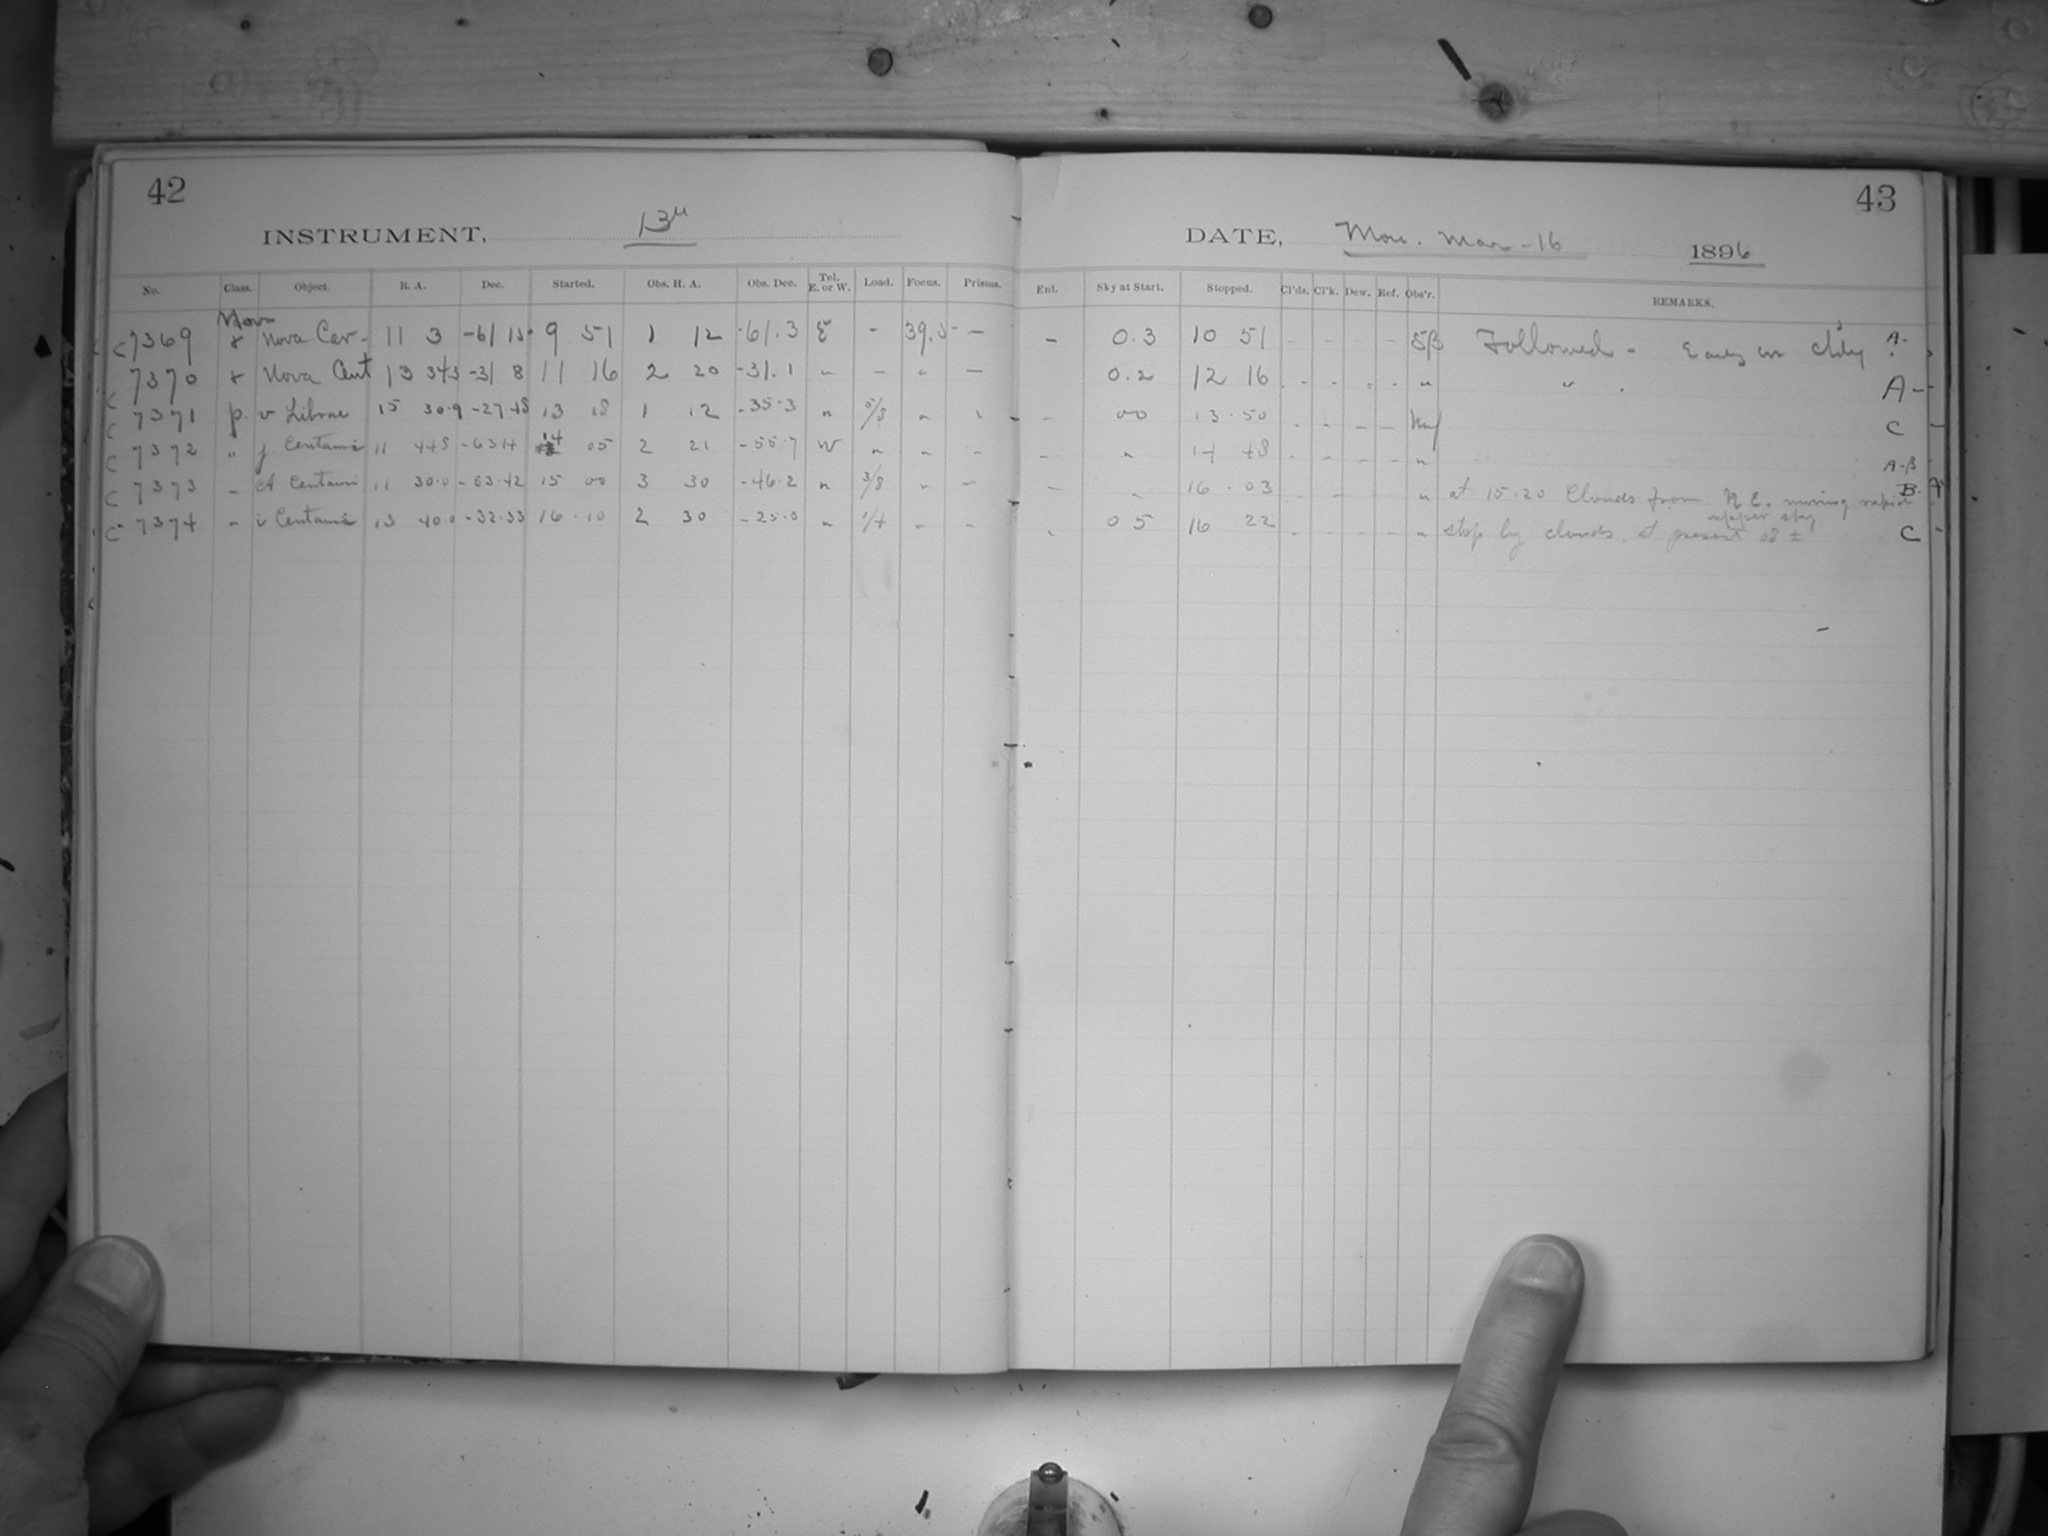 42
INSTRUMENT, 13"
No. Class. Object. R. A. Dec. Started. Obs. H. A. Obs. Dec. Tel. E. or W. Load. Focus. Prisms.
Nova
C 7369 & Nova Car- 11 3 -61 9 51 1 12 -61.3 E - 39.5 -
C 7370 & Nova Cent 13 34.3 -31 8 11 16 2 20 -31.1 " - " -
C 7371 p. v Librae 15 30.9 -27.48 13 18 1 12 -35.3 " 5/8 "
C 7372 " j Centauri 11 44.8 -63.14 14 05 2 21 -55.7 W " " -
C 7373 " A Centauri 11 30.0 -53.42 15 00 3 30 -46.2 " 3/8 " -
C 7374 " i Centauri 13 40.0 -32.33 16.10 2 30 -25.0 " 1/4 " -
43
DATE, Mon. Mar-16 1896
Enl. Sky at Start. Stopped. Cl'ds. Cl'k. Dew. Ref. Obs'r. REMARKS.
- 0.3 10 51 - - - - Followed - cldy A-
0.2 12 16 - - - - " " A-
- 00 13.50 - - - - C -
- " 14 48 - - - - " A-B
- " 16.03 - - " at 15.20 Clouds from N E. moving rapid B.
0 5 16 22 - - - - " stop by clouds. at present 08 ± C -
upper sky